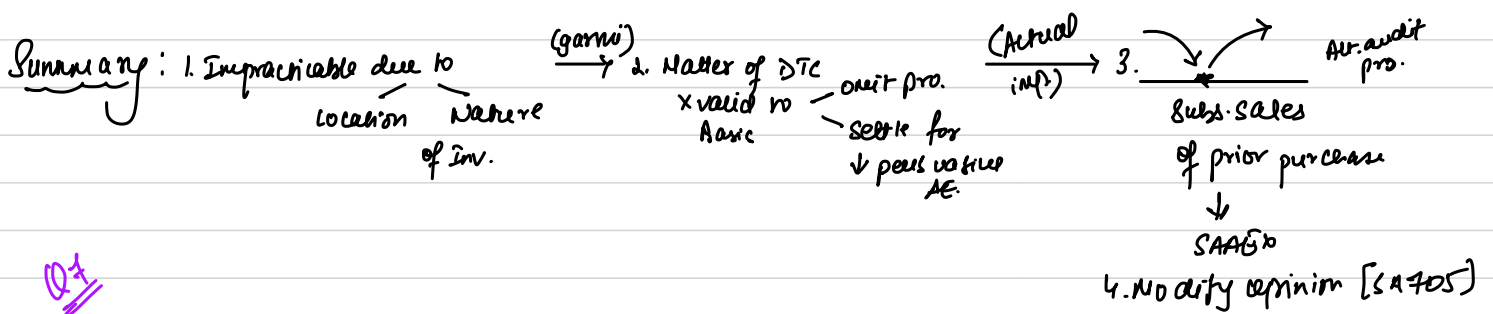 Summary: 1. Impracticable due to
Location Nature
of Inv.
(garmi)
2. Matter of DTC
x valid to
Basic
omit pro.
settle for
↓ persuasive
AE.
(Actual
imp)
3.
Alt. audit
pro.
Subs. sales
of prior purchase
↓
SAAE x
4. Modify opinion [SA 705]
Q7